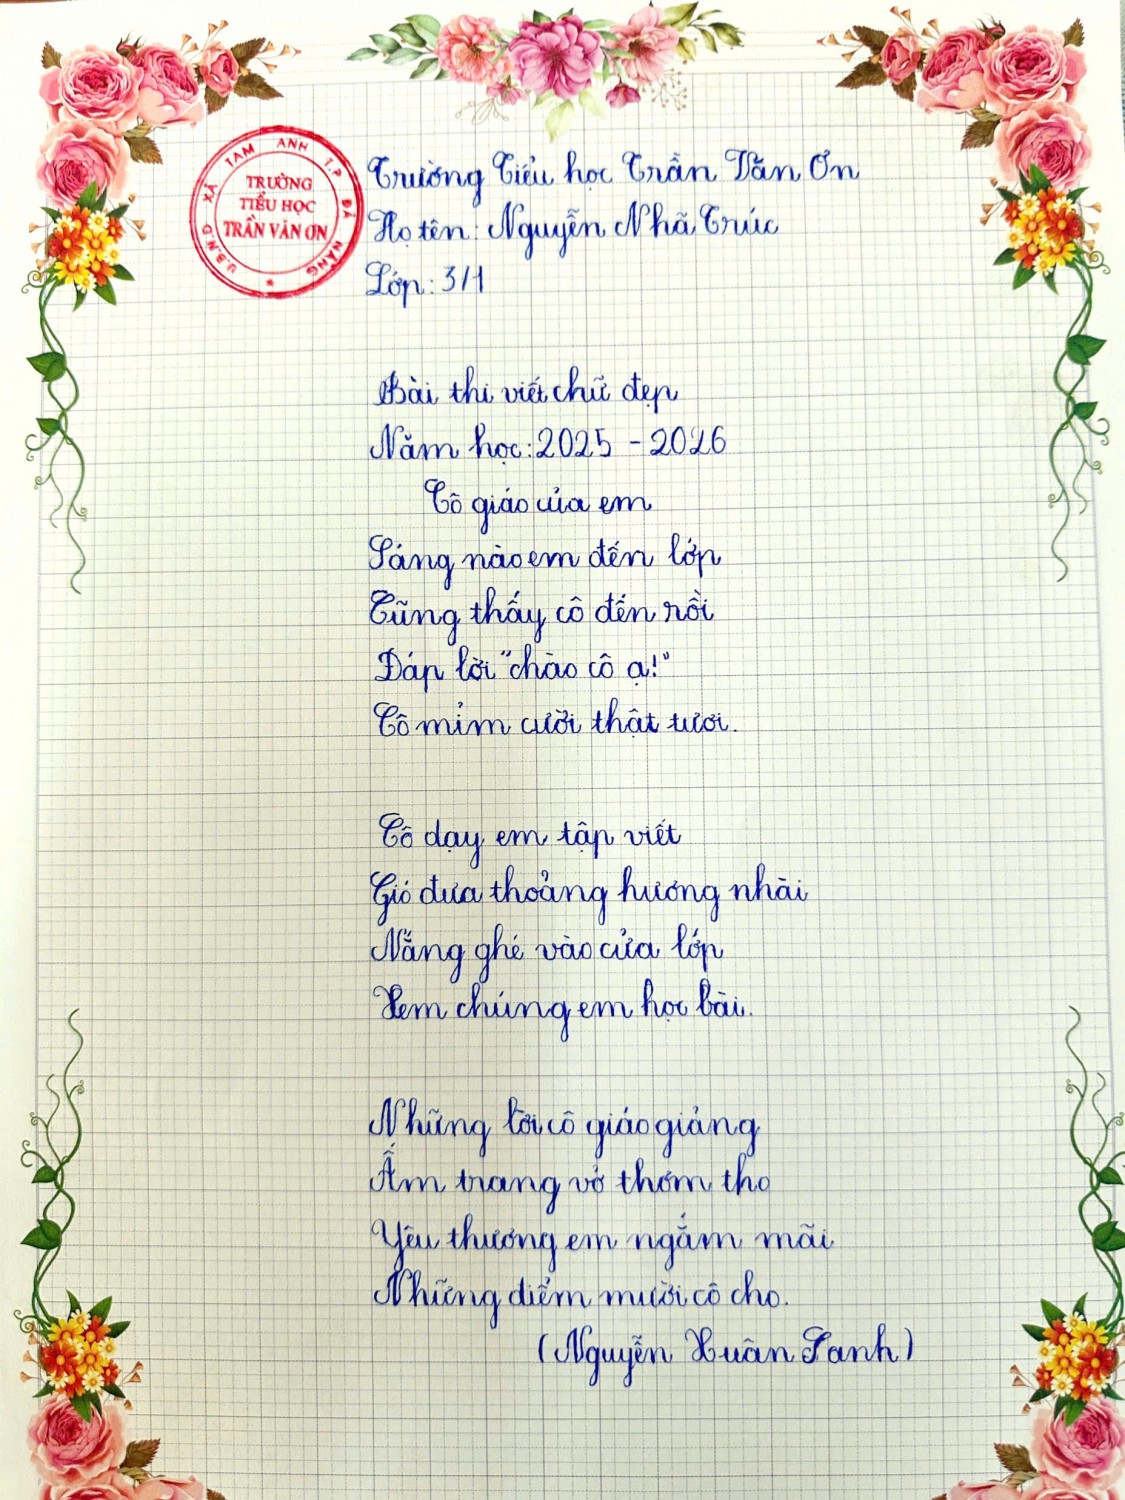 U.B.N.D XÃ TAM ANH T.P ĐÀ NẴNG
TRƯỜNG
TIỂU HỌC
TRẦN VĂN ƠN
Trường Tiểu học Trần Văn Ơn
Họ tên: Nguyễn Nhã Trúc
Lớp: 3/1
Bài thi viết chữ đẹp
Năm học: 2025 - 2026
Cô giáo của em
Sáng nào em đến lớp
Cũng thấy cô đến rồi
Đáp lời "chào cô ạ!"
Cô mỉm cười thật tươi.
Cô dạy em tập viết
Gió đưa thoảng hương nhài
Nắng ghé vào cửa lớp
Xem chúng em học bài.
Những lời cô giáo giảng
Ấm trang vở thơm tho
Yêu thương em ngắm mãi
Những điểm mười cô cho.
(Nguyễn Xuân Sanh)